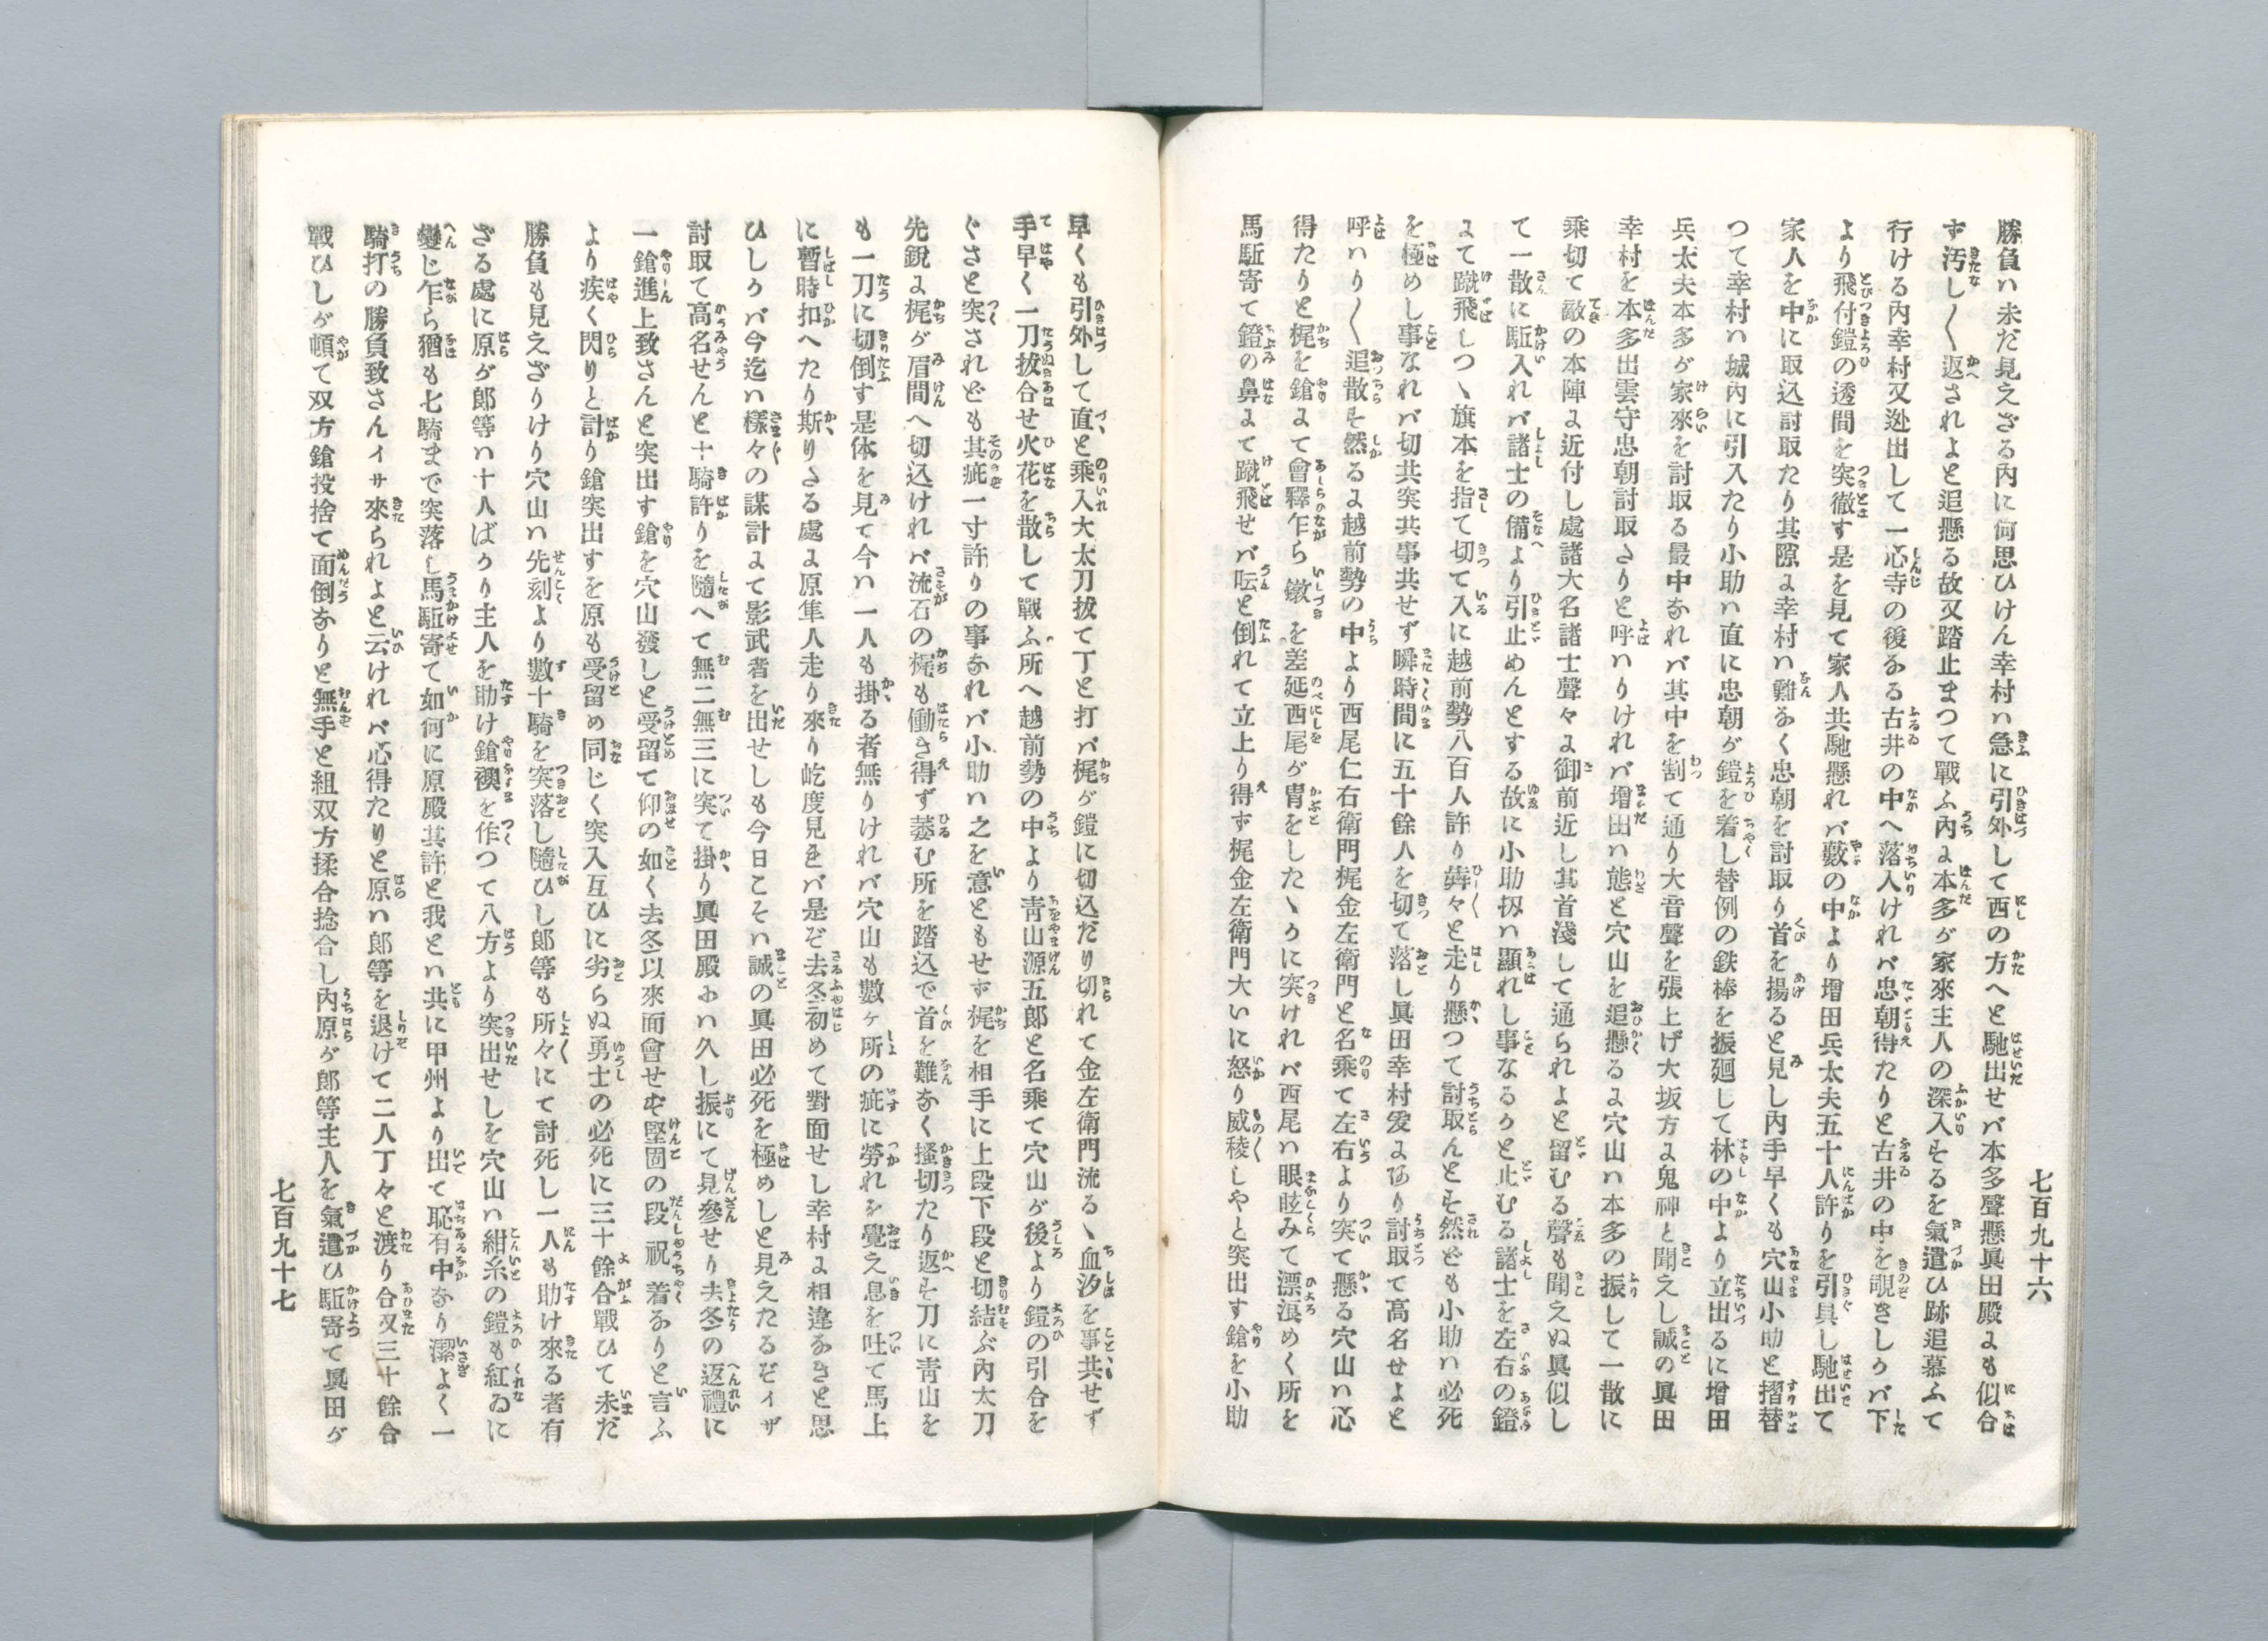 七百九十六
勝負ハ未だ見えざる内に何思ひけん幸村ハ急に引外して西の方へと馳出せバ本多聲懸眞田殿よも似合
ず汚し〱返されよと追懸る故又踏止まつて戰ふ内よ本多が家來主人の深入そるを氣遣ひ跡追慕ふて
行ける内幸村又迯出して一心寺の後ある古井の中へ落入けれバ忠朝得たりと古井の中を覗きしうバ下
より飛付鎧の透間を突徹す是を見て家人共馳懸れバ藪の中より増田兵太夫五十人許りを引具し馳出て
家人を中に取込討取たり其隙よ幸村ハ難あく忠朝を討取り首を揚ると見し内手早くも穴山小助と摺替
つて幸村ハ城内に引入たり小助ハ直に忠朝が鎧を着し替例の鉄棒を振廻して林の中より立出るに増田
兵太夫本多が家來を討取る最中あれバ其中を割て通り大音聲を張上げ大坂方よ鬼神と聞えし誠の眞田
幸村を本多出雲守忠朝討取さりと呼ハりけれバ増田ハ態と穴山を追懸るよ穴山ハ本多の振して一散に
乘切て敵の本陣よ近付し處諸大名諸士聲々よ御前近し其首淺して通られよと留むる聲も聞えぬ眞似し
て一散に駈入れバ諸士の備より引止めんとする故に小助扨ハ顯れし事なるうと止むる諸士を左右の鐙
よて蹴飛しつゝ旗本を指て切て入に越前勢八百人許り犇々と走り懸つて討取んとそ然ども小助ハ必死
を極めし事なれバ切共突共事共せず瞬時間に五十餘人を切て落し眞田幸村爰よあり討取て高名せよと
呼ハり〱追散そ然るよ越前勢の中より西尾仁右衛門梶金左衛門と名乘て左右より突て懸る穴山ハ心
得たりと梶を鎗よて會釋乍ら鐓を差延西尾が冑をしたゝうに突けれバ西尾ハ眼眩みて漂渡めく所を
馬駈寄て鐙の鼻よて蹴飛せバ呍と倒れて立上り得ず梶金左衛門大いに怒り威稜しやと突出す鎗を小助
早くも引外して直と乘入大太刀拔て丁と打バ梶が鎧に切込だり切れて金左衛門流るゝ血汐を事共せず
手早く一刀拔合せ火花を散して戰ふ所へ越前勢の中より靑山源五郎と名乘て穴山が後より鎧の引合を
ぐさと突されども其疵一寸許りの事あれバ小助ハ之を意ともせず梶を相手に上段下段と切結ぶ内太刀
先鋭よ梶が眉間へ切込けれバ流石の梶も働き得ず萎む所を踏込で首を難あく搔切たり返そ刀に靑山を
も一刀に切倒す是体を見て今ハ一人も掛る者無りけれバ穴山も數ヶ所の疵に勞れを覺え息を吐て馬上
に暫時扣へたり斯りさる處よ原隼人走り來り屹度見ゑバ是ぞ去冬初めて對面せし幸村よ相違あきと思
ひしうバ今迄ハ樣々の謀計よて影武者を出せしも今日こそハ誠の眞田必死を極めしと見えたるぞイザ
討取て高名せんと十騎許りを隨へて無二無三に突て掛り眞田殿おハ久し振にて見參せり去冬の返禮に
一鎗進上致さんと突出す鎗を穴山發しと受留て仰の如く去冬以來面會せず堅固の段祝着ありと言ふ
より疾く閃りと計り鎗突出すを原も受留め同じく突入互ひに劣らぬ勇士の必死に三十餘合戰ひて未だ
勝負も見えざりけり穴山ハ先刻より數十騎を突落し隨ひし郎等も所々にて討死し一人も助け來る者有
ざる處に原が郎等ハ十人ばうり主人を助け鎗襖を作つて八方より突出せしを穴山ハ紺糸の鎧も紅ゐに
變じ乍ら猶も七騎まで突落し馬駈寄て如何に原殿其許と我とハ共に甲州より出て恥有中あり潔よく一
騎打の勝負致さんイサ來られよと云けれバ心得たりと原ハ郎等を退けて二人丁々と渡り合又三十餘合
戰ひしが頓て双方鎗投捨て面倒ありと無手と組双方揉合捻合し内原が郎等主人を氣遣ひ駈寄て眞田が
七百九十七